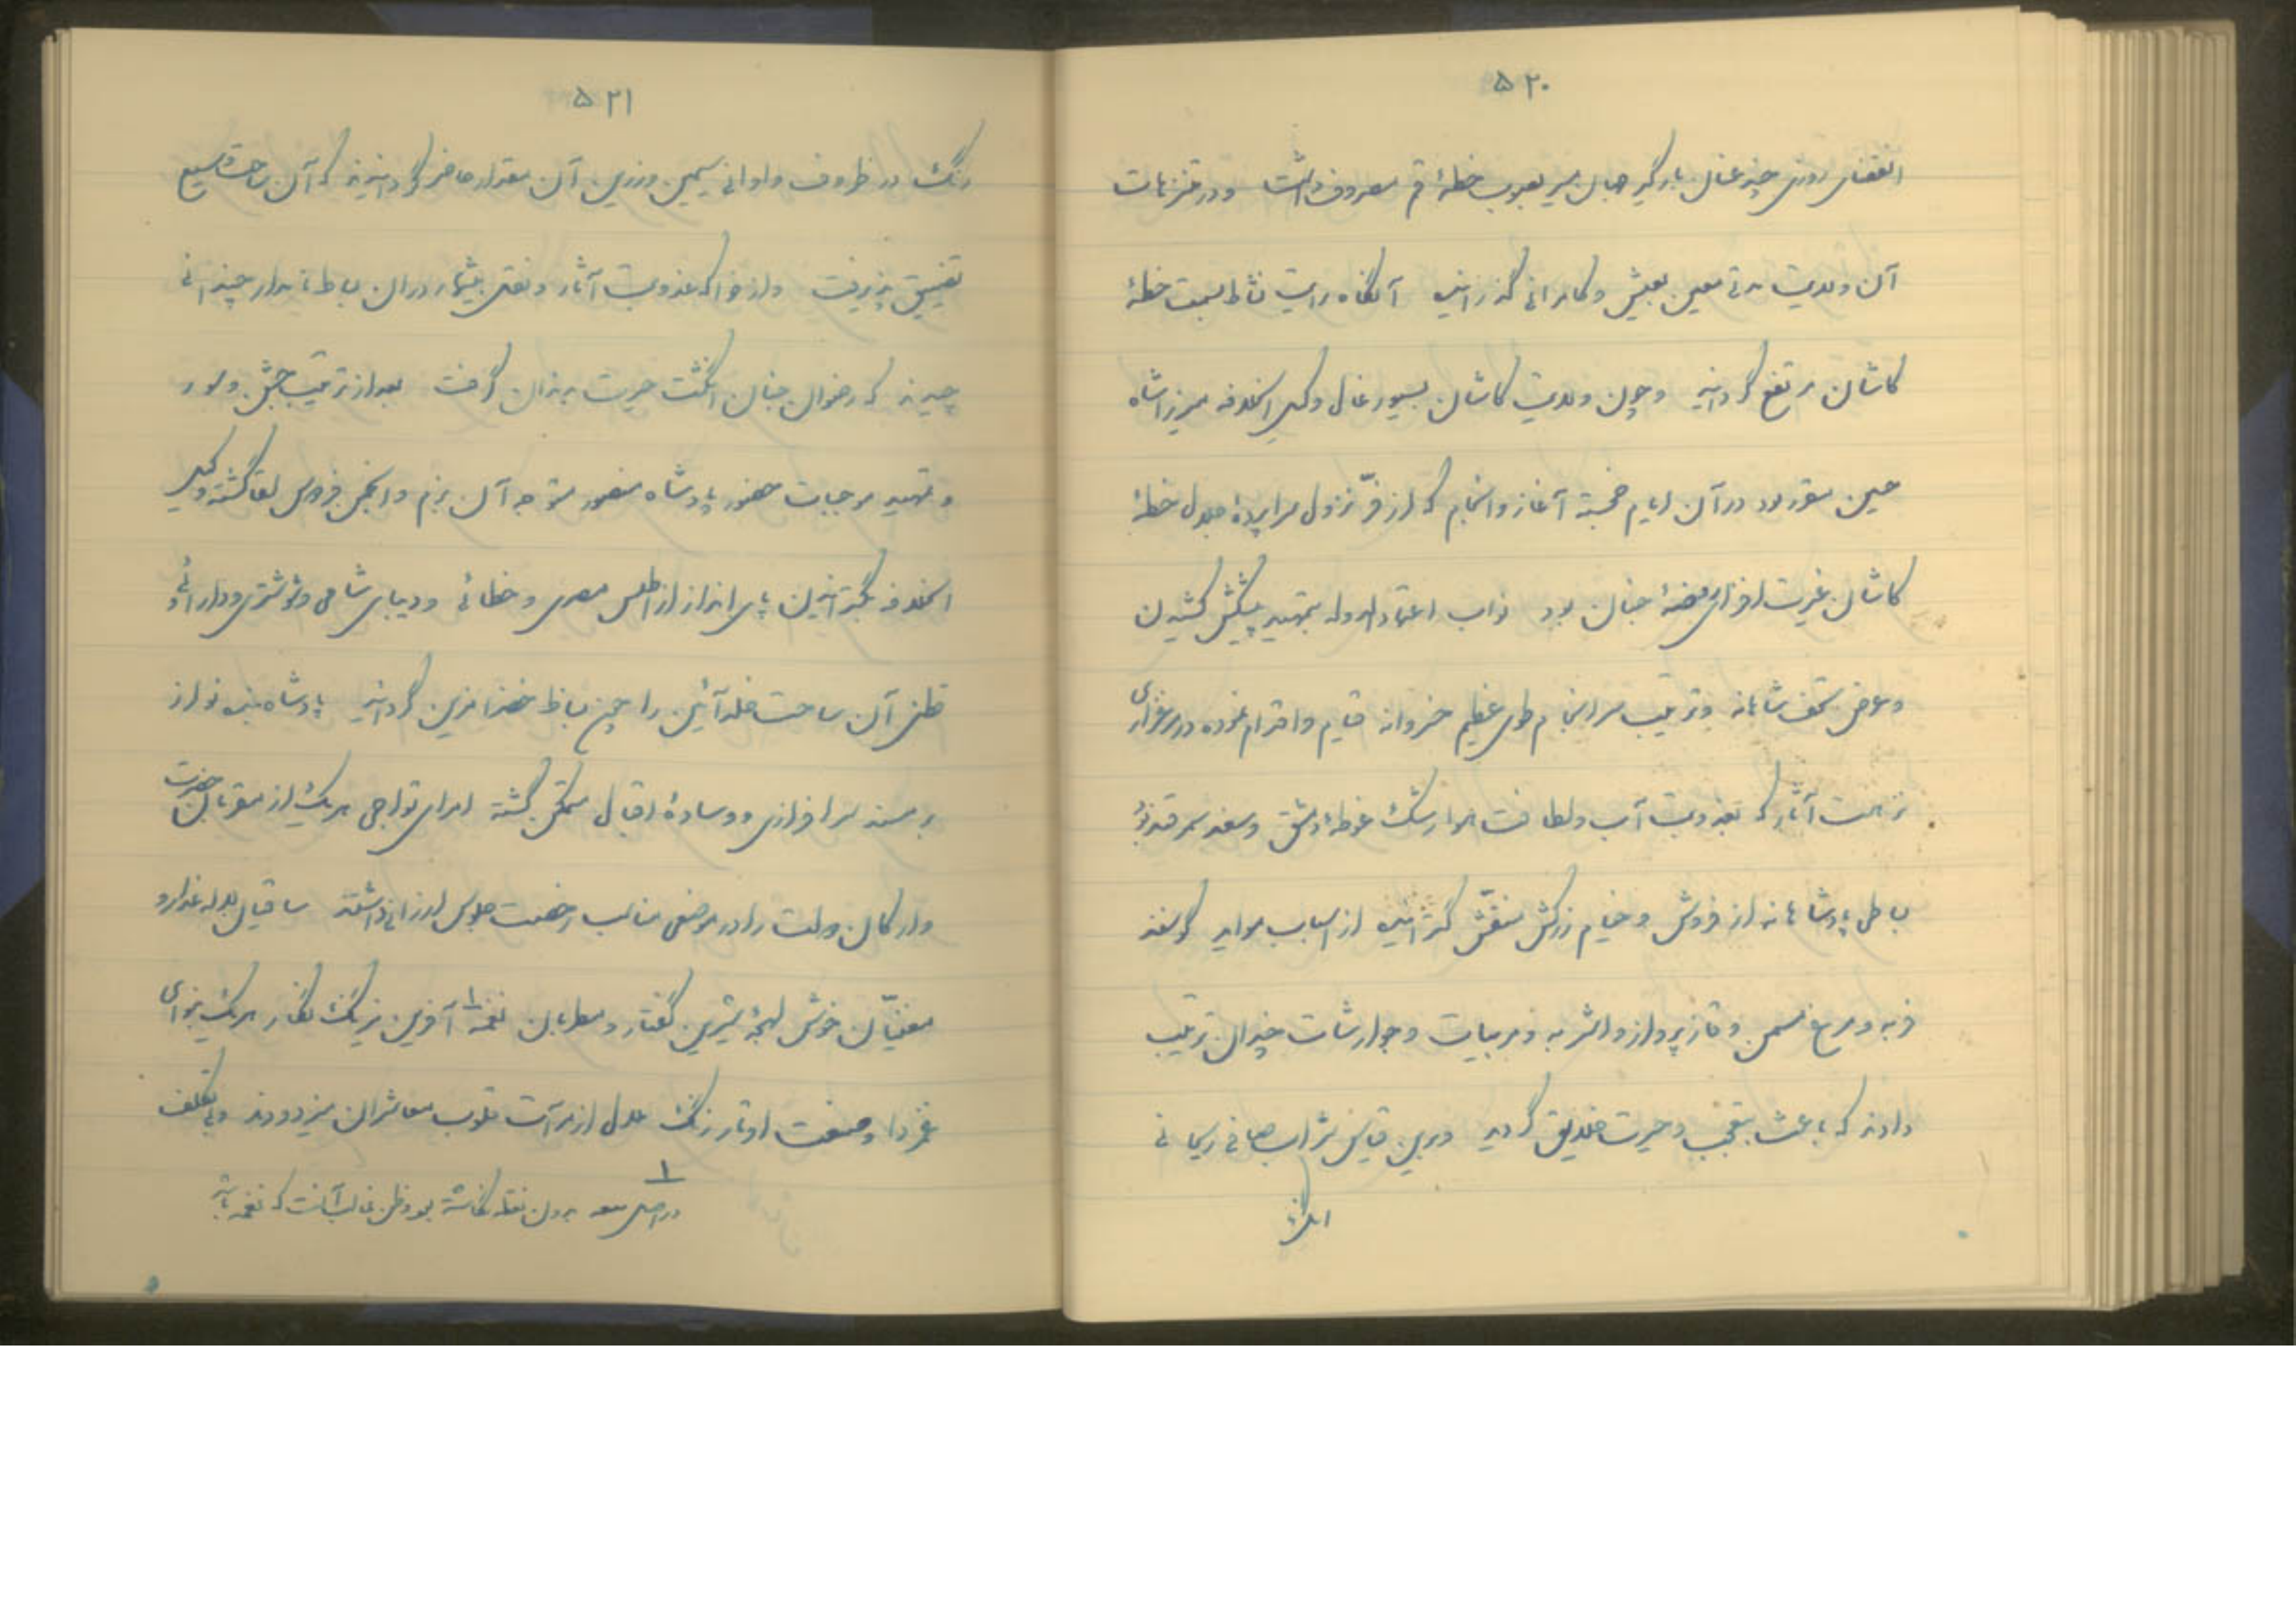 ۵۲۰
انقضای روزی چند عنان بارگیر جهان سیر بصوب خطهٔ قم معروف داشت و در متنزهات
آن ولایت مدتی معین بعیش و کامرانی گذرانید آنگاه رایت نشاط بسمت خطهٔ
کاشان مرتفع گردانید و چون ولایت کاشان بسیورغال وکیل الخلافه میرزا شاه
حسین مقرر بود در آن ایام خجسته آغاز و انجام که از فرّ نزول سراپردهٔ جلال خطهٔ
کاشان غیرت افزای روضهٔ جنان بود نواب اعتمادالدوله بتمهید پیشکش کشیدن
و عرض تحف شاهانه و ترتیب سرانجام طوی عظیم خسروانه قیام و اقدام نموده در مرغزاری
نزاهت آثار که بعذوبت آب و لطافت هوا رشک غوطهٔ دمشق و سغد سمرقند بود
بساطی پادشاهانه از فروش و خیام زرکش منقّش گسترانید از اسباب موايد گوسفند
فربه و مرغ مسمن و قاز پرواز و اشربه و مربیات و جوارشات چندان ترتیب
دادند که باعث تعجب و حیرت خلایق گردید و برین قیاس شراب صافی ریحانی
۵۲۱
رنگ در ظروف و اوانی سیمین و زرین آن مقدار حاضر گردانیدند که آن ساحت وسیع
تضییق پذیرفت و از فواکه عذوبت آثار و نقل بیشمار در آن بساط نامدار چندانی
چیدند که رضوان جنان انگشت حیرت بدندان گرفت بعد از ترتیب جشن و سور
و تمهید موجبات حضور پادشاه منصور متوجه آن بزم و انجمن فردوس لقا گشته وکیل
الخلافه بگسترانیدن پای انداز از اطلس مصری و خطائی و دیبای شامی و شوشتری و دارائی و
قطنی آن ساحت خلد آئین را چون بساط خضرا مزین گردانید پادشاه بنده نواز
بر مسند سرافرازی و وسادهٔ اقبال متمکن گشته امرای تواچی هر یک از مقربان حضرت
و ارکان دولت را در موضعی مناسب رخصت جلوس ارزانی داشتند ساقیان لاله عذار و
مغنیّان خوش لهجهٔ شیرین گفتار و مطربان نغمه۱ آفرین نیرنگ نگار هر یک بنوای
غم‌زدا و صنعت اوتار زنگ ملال از مرآت قلوب معاشران میزدودند و بی تکلف
۱ در اصل معه بدون نقطه نگاشته بود و ظن غالب آنست که نغمه باشد